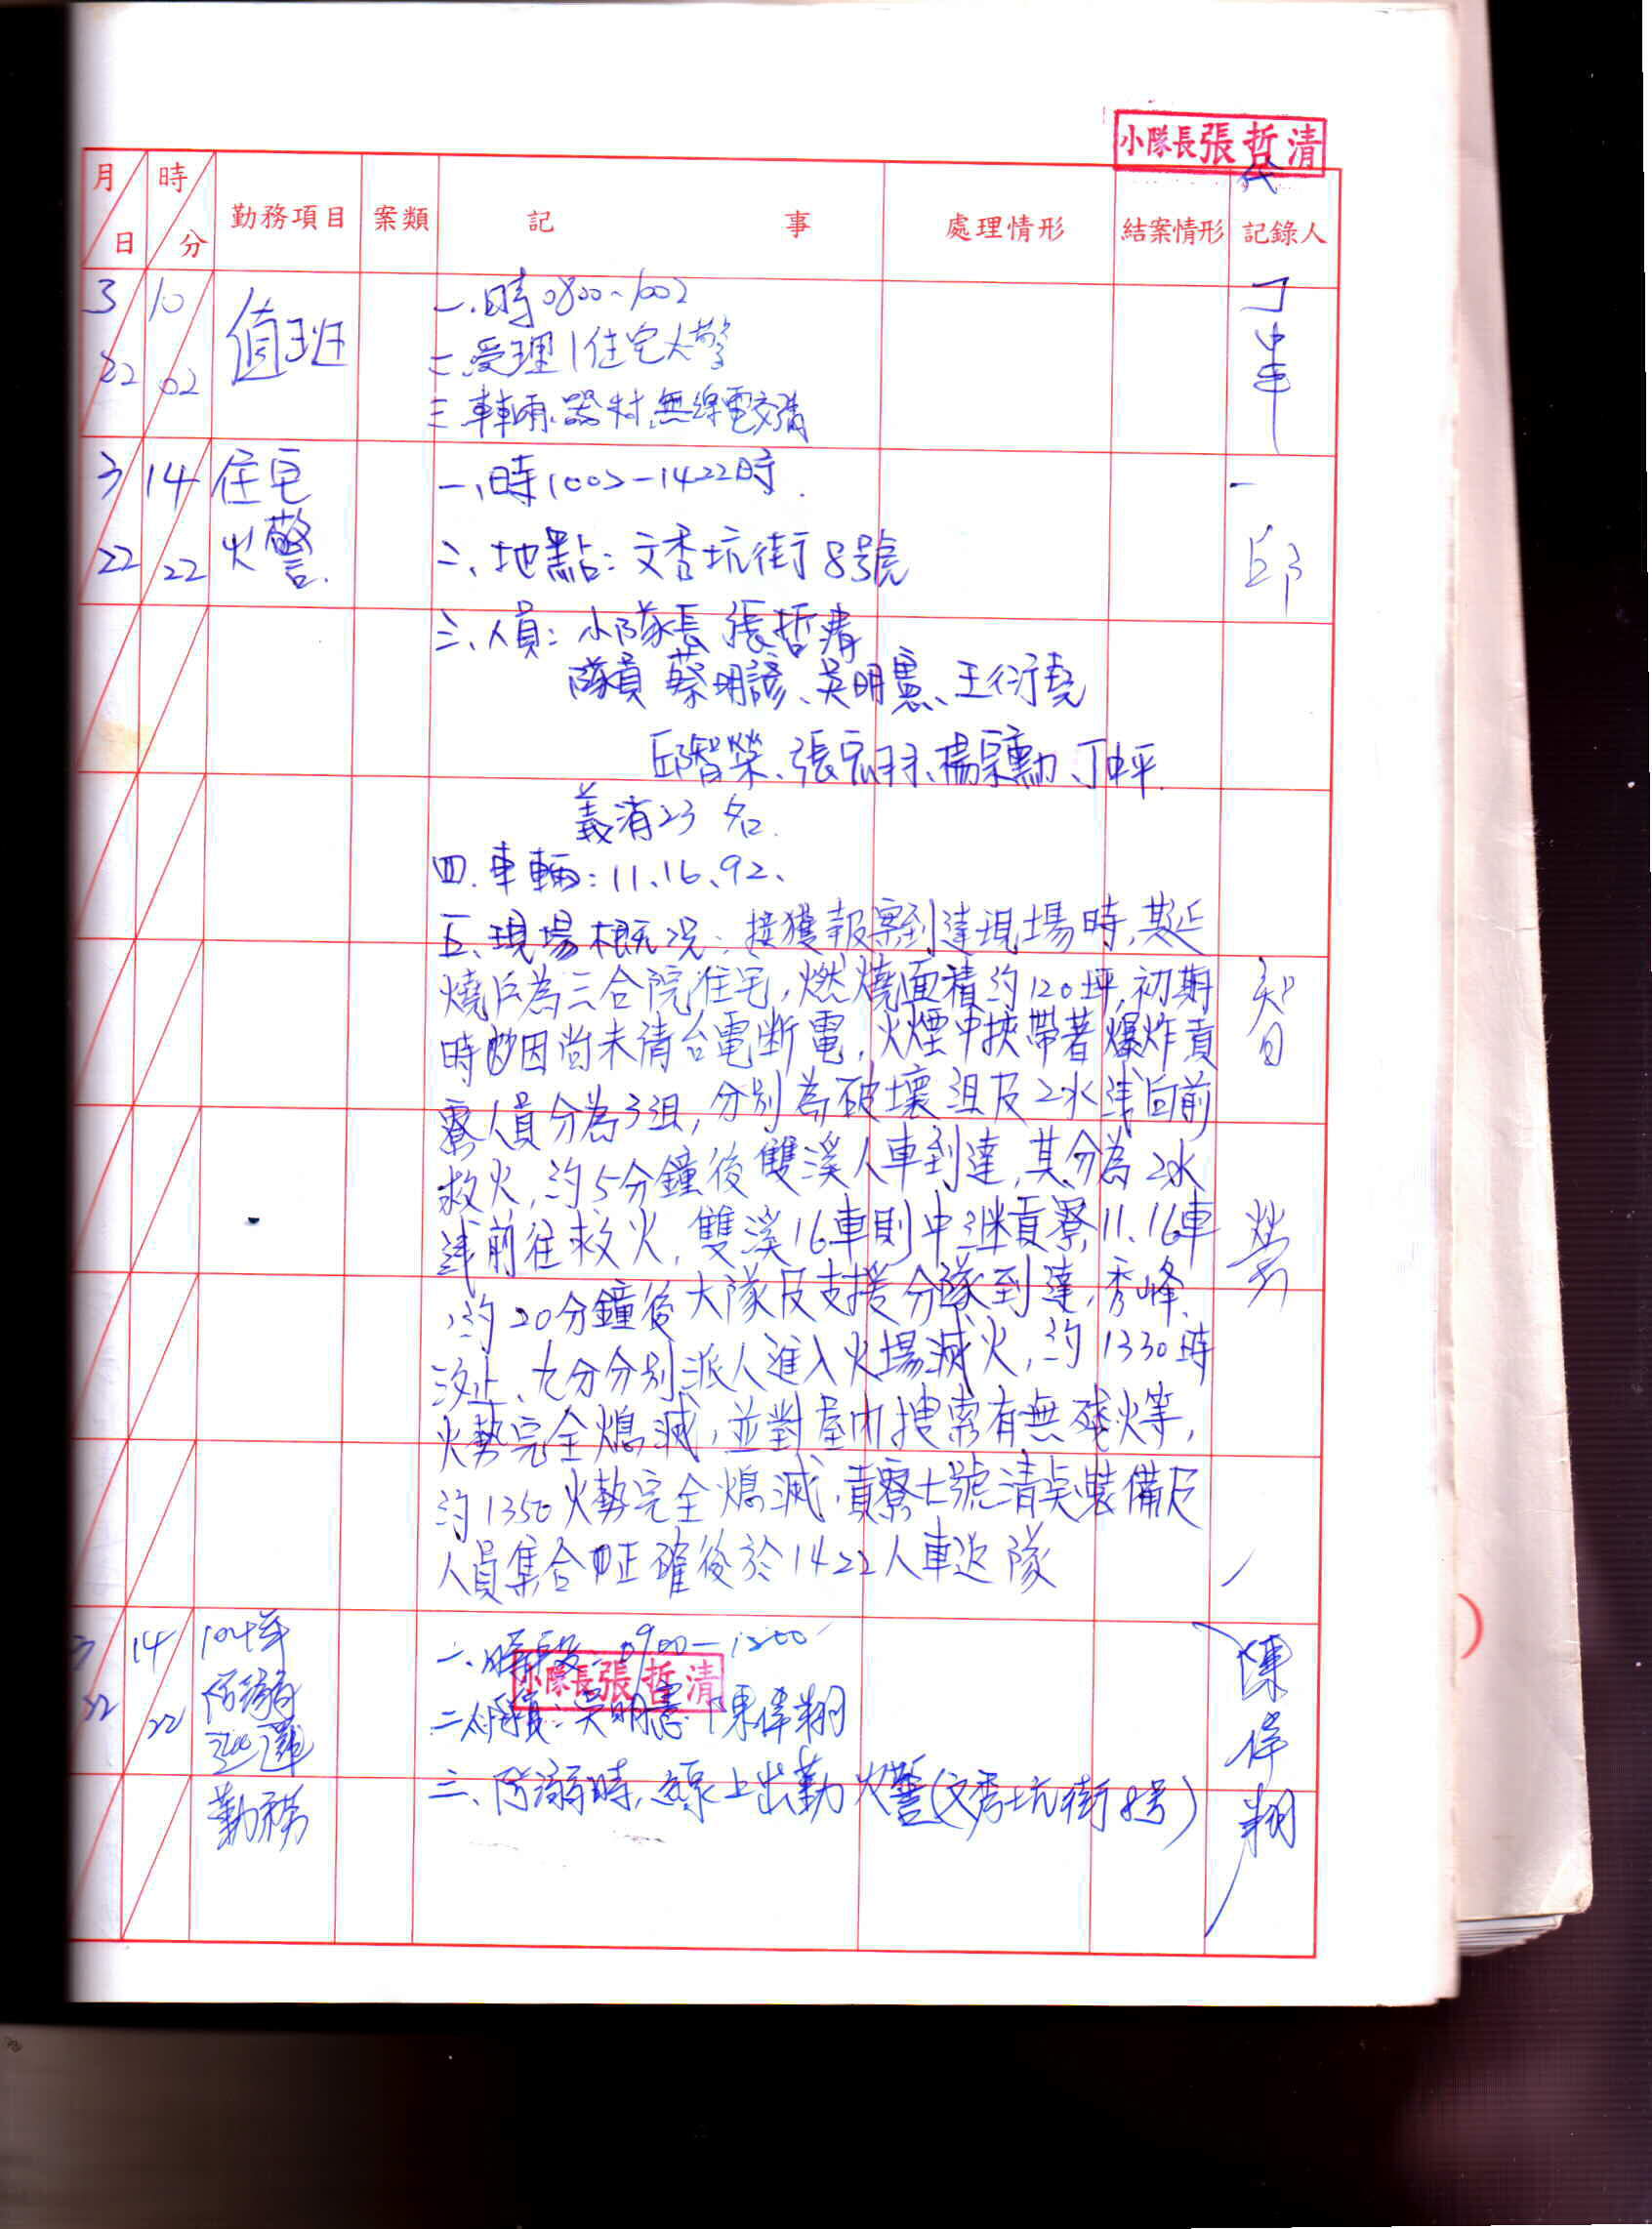 小隊長張哲清
代
月 日 時 分 勤務項目 案類 記 事 處理情形 結案情形 記錄人
3 10 值班 一.時0800~1002 丁中平
22 02 二.受理1住宅火警
三.車輛.器材.無線電交清
3 14 住宅 一、時1002-1422時. 邱智榮
22 22 火警. 二、地點:文秀坑街8號
三、人員:小隊長 張哲清
隊員 蔡明諺、吳明憲、王衍堯
邱智榮、張宏羽、楊宗勳、丁中平.
義消23名.
四.車輛:11、16、92、
五、現場概況:接獲報案到達現場時,其延
燒戶為三合院住宅,燃燒面積約120坪,初期
時因尚未請台電斷電,火煙中挾帶著爆炸貢
寮人員分為3組,分別為破壞組及2水線向前
救火,約5分鐘後雙溪人車到達,其分為2水
線前往救火,雙溪16車則中継貢寮11、16車
,約20分鐘後大隊及支援分隊到達,秀峰、
汐止、七分分別派人進入火場滅火,約1330時
火勢完全熄滅,並對屋內搜索有無殘火等,
約1350火勢完全熄滅,貢寮七號清點裝備及
人員集合正確後於1422人車返隊
3 14 104年 一、時段:0900-1300 陳偉翔
22 22 防溺 小隊長張哲清
巡邏 二、人員:吳明憲、陳偉翔
勤務 三、防溺時,線上出勤火警(文秀坑街8号)